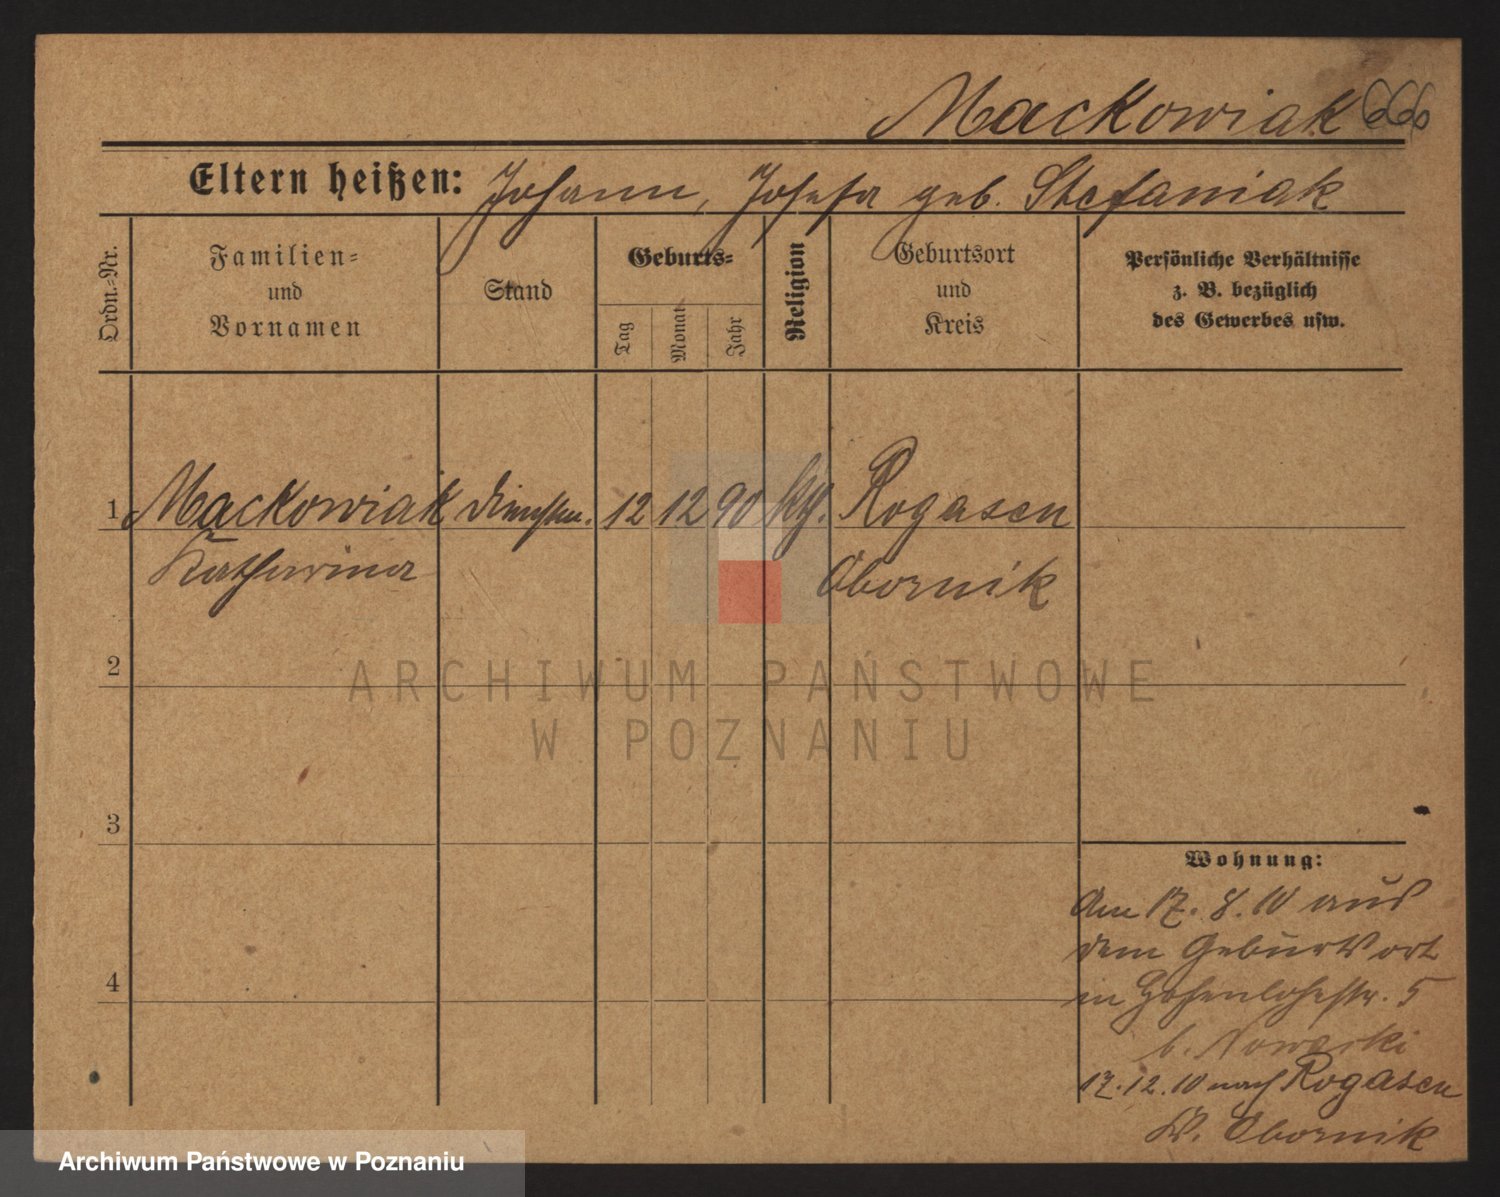 Mackowiak 666
Eltern heißen: Johann, Josefa geb. Stefaniak
Ordn.-Nr.
Familien- und Vornamen
Stand
Geburts-
Tag
Monat
Jahr
Religion
Geburtsort und Kreis
Persönliche Verhältnisse
z. B. bezüglich
des Gewerbes usw.
1 Mackowiak Dienstm. 12 12 90 kth. Rogasen
Katharina Obornik
2
ARCHIWUM PAŃSTWOWE
W POZNANIU
3
Wohnung:
Am 17. 8. 10 aus
dem Geburtsort
in Hohenlohestr. 5
b. Nowacki
4
17. 12. 10 nach Rogasen
K. Obornik
Archiwum Państwowe w Poznaniu